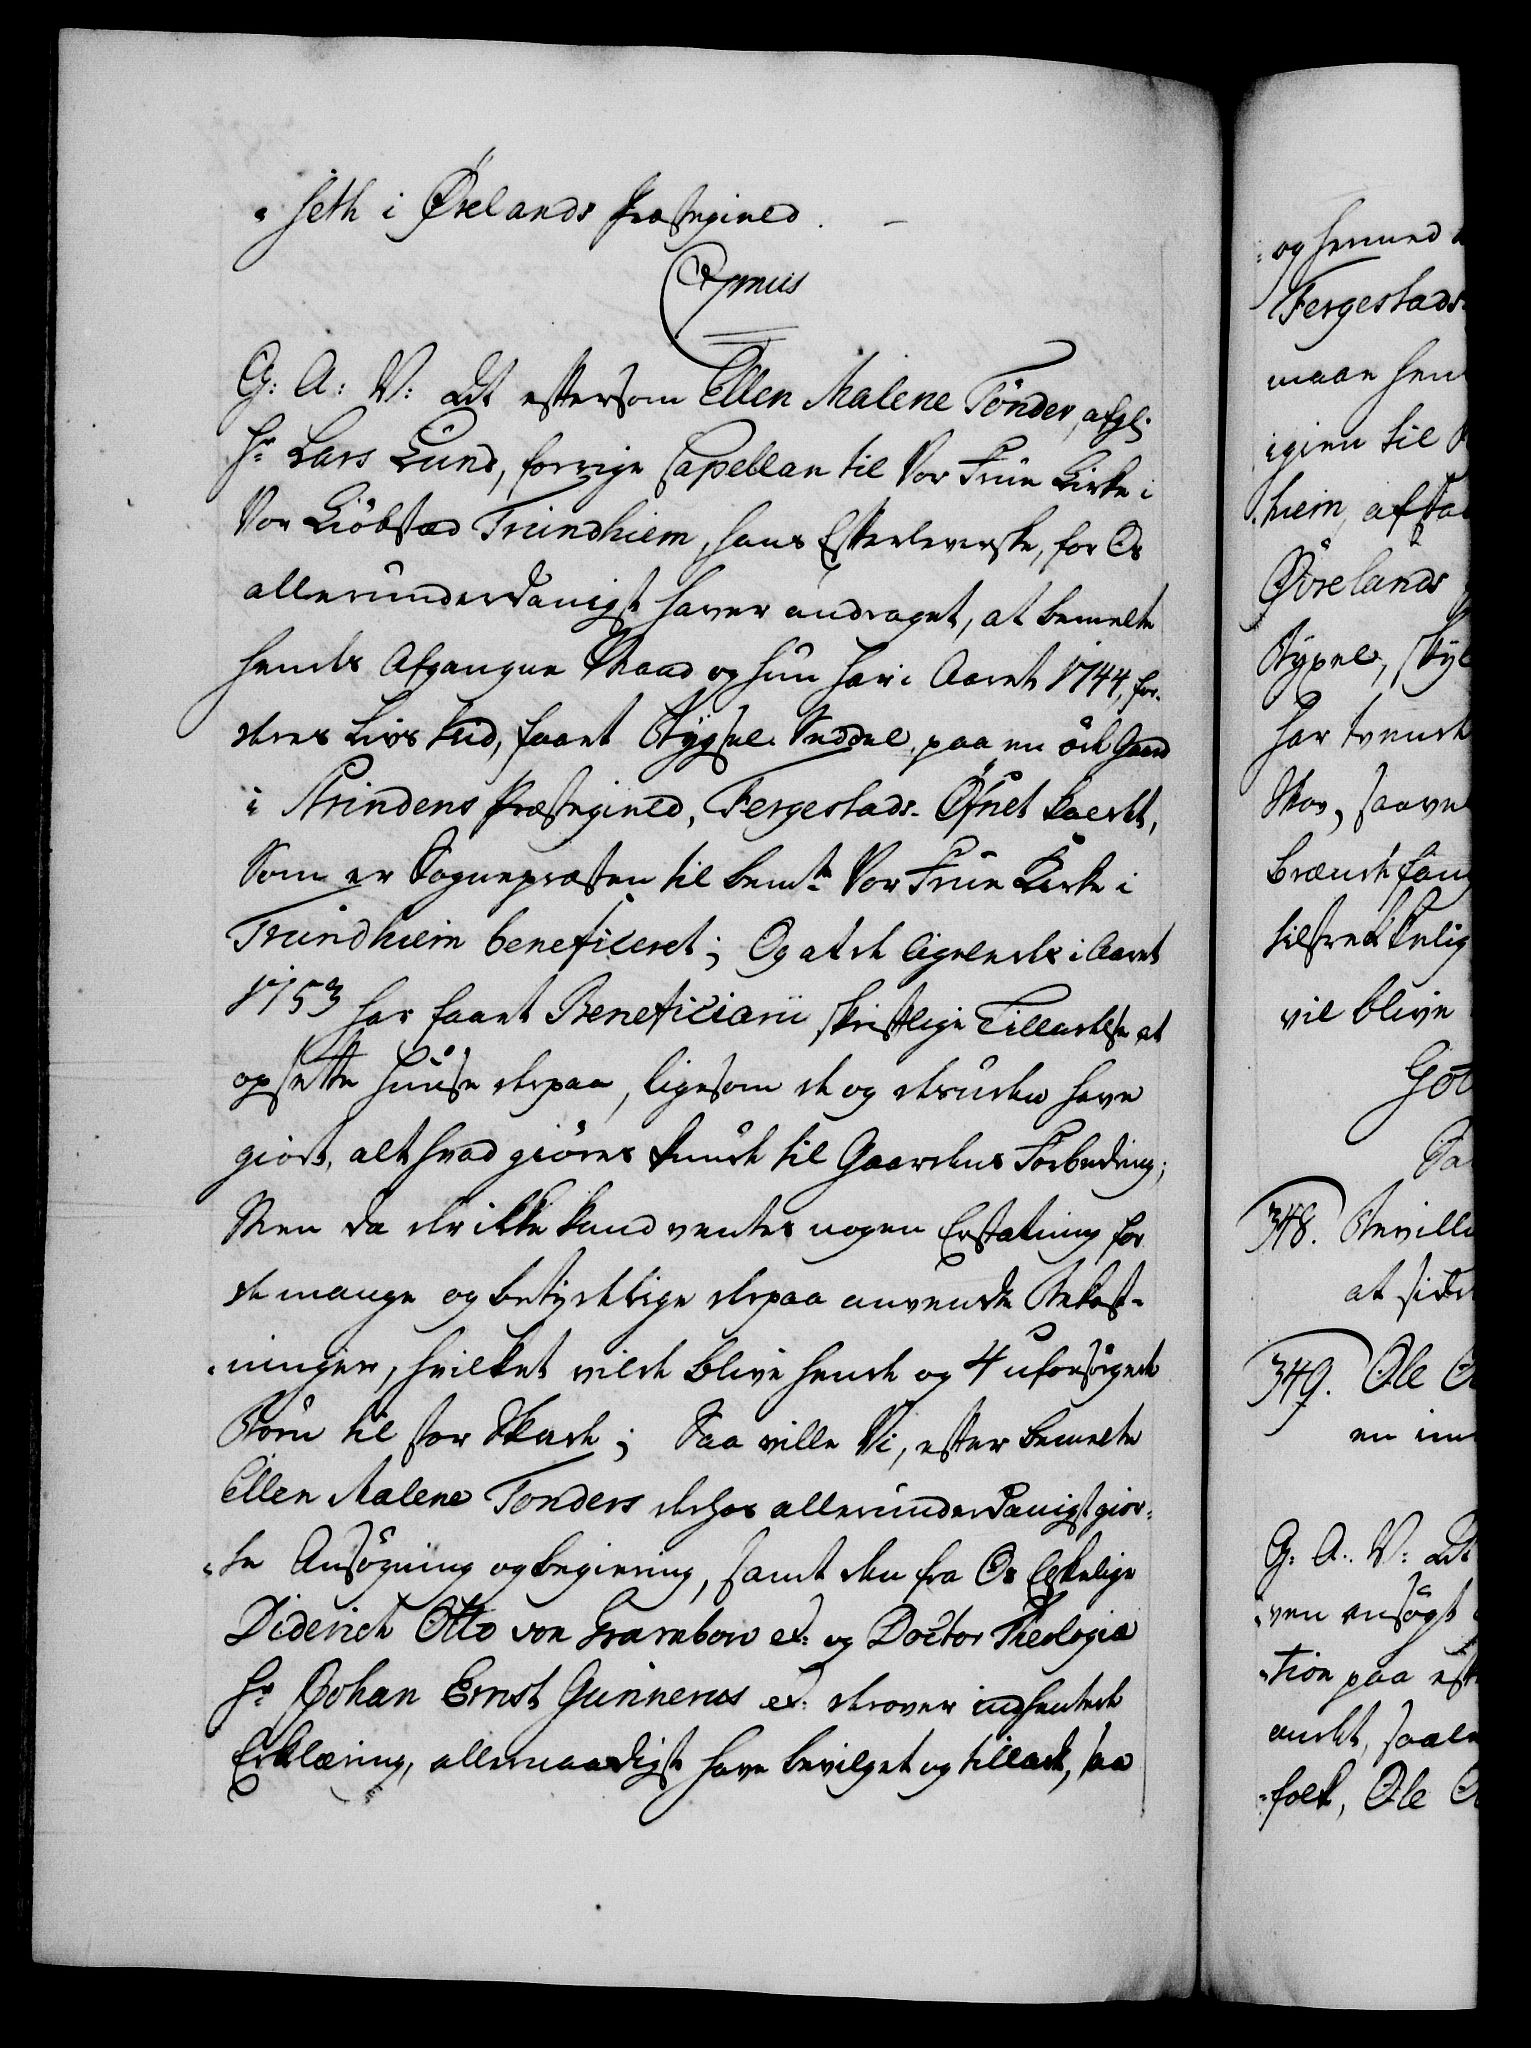 „seth i Ørelands Præstegield. –
Opmus
G: A: V: Vdt eftersom Ellen Malene Tönder, afgl:
Hr Lars Lund, forrige Capellan til Vor Frue Kirke i
Vor Kiöbstæd Trundhiem, hans Efterleverske, for Os
allerunderdanigst haver andraget, at bemelte
hendes Afgangne Mand og hun har i Aaret 1744, for
deres Livs Tid, faaet Bygsel Seddel paa en öde Gaard
i Strindens Præstegield, Fergestads-Öfnet kaldet,
Som er Sognepræsten til bemte Vor Frue Kirke i
Trundhiem beneficeret; Og at de ligeledes i Aaret
1753 har faaet Beneficiarii skriftlige Tilladelse at
opsette Huuse derpaa, ligesom de og desuden have
giort, alt hvad giöres kunde til Gaardens Forbedring;
Men da der ikke kand ventes nogen Erstatning for
de mange og betydelige derpaa anvendte Bekost-
„ninger, hvilket vilde blive hende og 4 uforsörgede
Börn til stor Skade; Saa ville Vi, efter bemelte
Ellen Malene Tonders derhos allerunderdanigst gior-
„te Ansögning og begiering, samt den fra Os Elskelige
Diderich Otto von Grambow et: og Doctor Theologiæ
Hr Johan Ernst Gunnerus et: derover indhentede
Erklæring, allernaadigst have bevilget og tilladt, saa
og hermed
Fergestads-
maae hen
igien til
hiem, afsta
Örelands
Byxel, Skyl
har tvende
Skov, saavel
brændefang
tilstrekkelig
vil blive
348. Beville
at sidde
349. Ole
en im
G: A: V: Vdt
ven ansögt
„tion paa eft
andet, saale
„folk, Ole